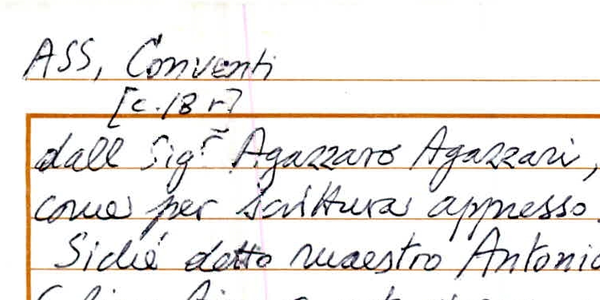 ASS, Conventi
[c. 18 r]
dall Sigr Agazzaro Agazzari,
come per scrittura appresso.
Sichè detto maestro Antonio